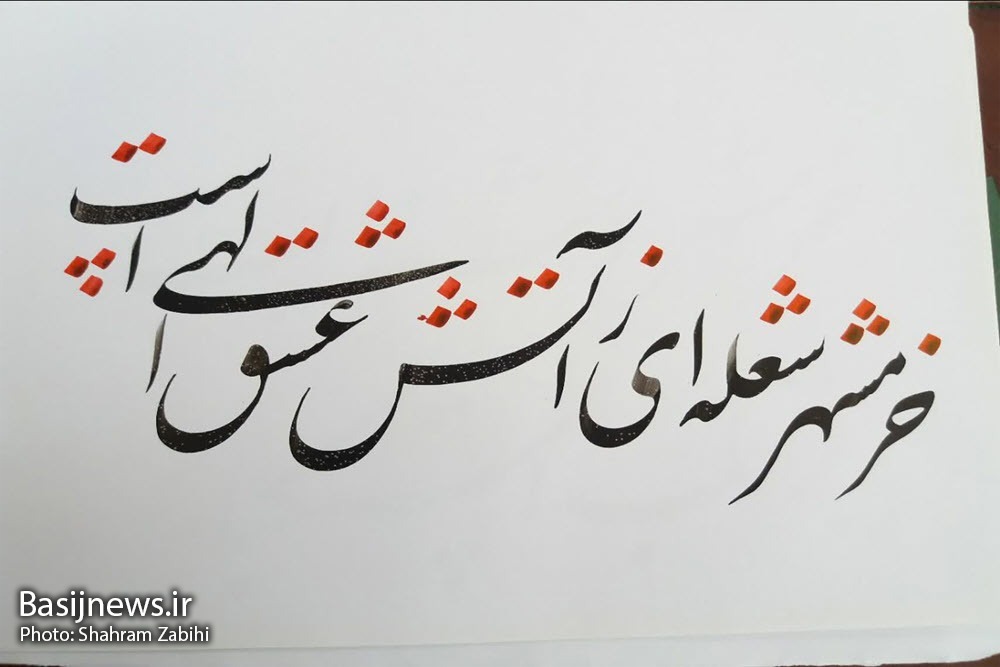 خرمشهر شعله ای از آتش عشق الهی است
Basijnews.ir
Photo: Shahram Zabihi